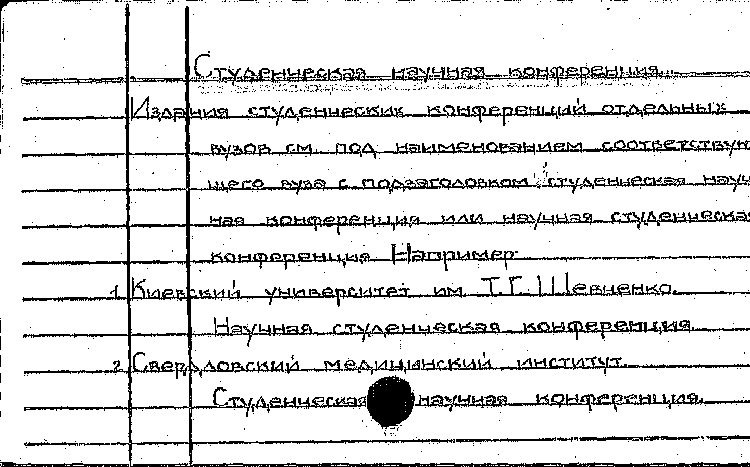 Студенческая научная конференция...
Издания студенческих конференций отдельных
вузов см. под наименованием соответствую
щего вуза с подзаголовком студенческая науч
ная конференция или научная студенческая
конференция Например
1. Киевский университет им Т.Г. Шевченко.
Научная студенческая конференция
2. Свердловский медицинский институт.
Студенческая научная конференция.